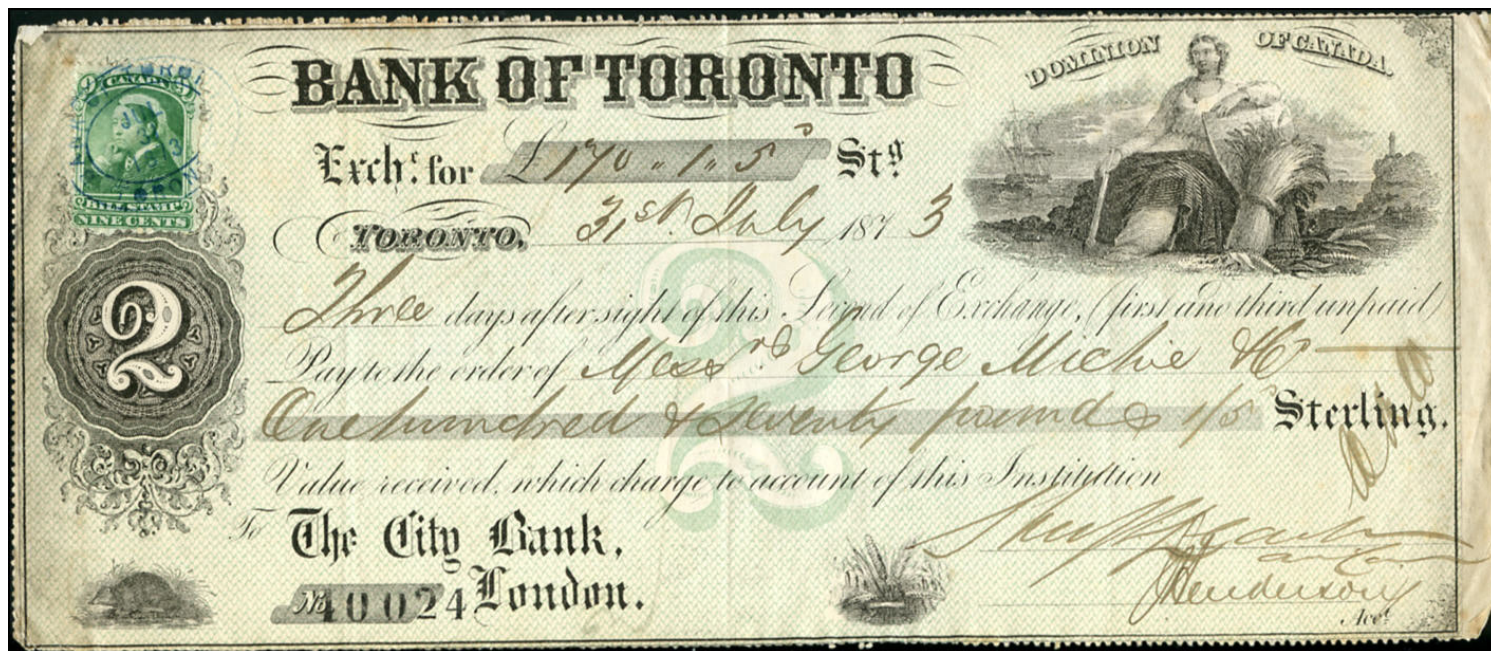 BANK OF TORONTO
DOMINION OF CANADA.
CANADA
BILL STAMP
NINE CENTS
Exchᵉ. for £170 „ 1 „ 5 Stᵍ
TORONTO, 31st. July 1873
2
Three days after sight of this Second of Exchange, (first and third unpaid)
Pay to the order of Messrs George Michie & Co
One hundred & seventy pounds 1/5 Sterling.
Value received, which charge to account of this Institution
To The City Bank,
London.
No 40024
J Henderson
Acct